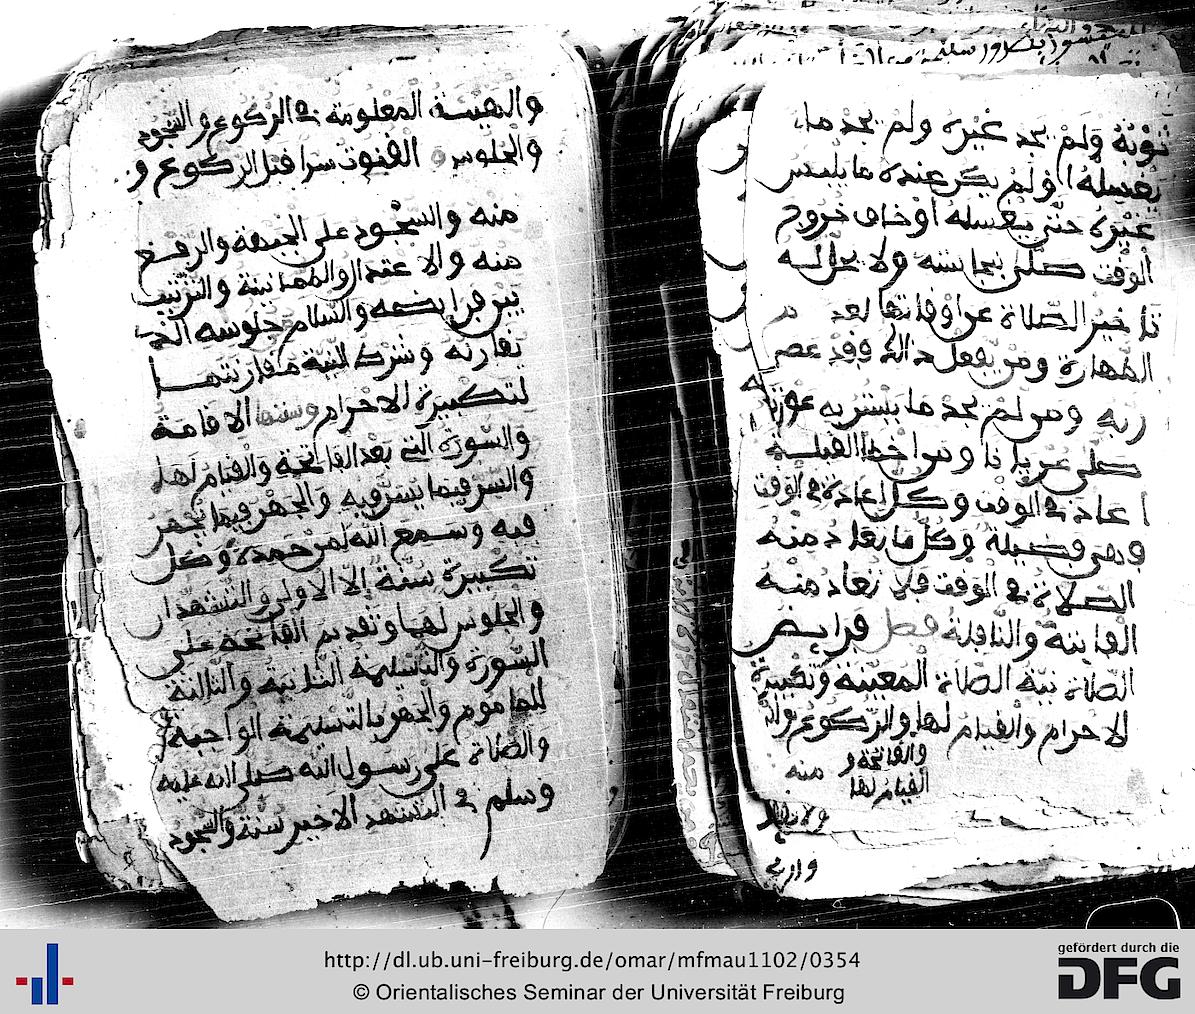 ثوبه ولم يجد غيره ولم يجد ما
يغسله أو لم يكن عنده ما يلبس
غيره حتى يغسله أو خاف خروج
الوقت صلى بنجاسته ولا يحل له
تاخير الصلاة عن أوقاتها لعدم
الطهارة ومن يفعل ذالك فقد عصى
ربه ومن لم يجد ما يستر به عورته
صلى عريانا ومن اخطا القبلة
اعاد في الوقت وكل إعادة في الوقت
فهي فضيلة وكل ما تعاد منه
الصلاة في الوقت فلا تعاد منه
الفايتة والنافلة فصل فرايض
الصلاة نية الصلاة المعينة وتكبيرة
الاحرام والقيام لها والركوع
والفاتحة و
القيام لها منه
والهيئة المعلومة في الركوع والسجود
والجلوس والقنوت سرا قبل الركوع و
منه والسجود على الجبهة والرفع
منه والاعتدال والطمانينة والترتيب
بين فرايضه والسلام وجلوسه الذ
يقارنه وشرط النية مقارنتها
لتكبيرة الاحرام وسننها الاقامة
والسورة التي بعد الفاتحة والقيام لها
والسر فيما يسر فيه والجهر فيما يجهر
فيه وسمع الله لمن حمده وكل
تكبيرة سنة إلا الاولى والتشهدان
والجلوس لهما وتقديم الفاتحة على
السورة والتسليمة الثانية والثالثة
للماموم والجهر بالتسليمة الواجبة
والصلاة على رسول الله صلى الله عليه
وسلم في التشهد الاخير سنة والسجود
http://dl.ub.uni-freiburg.de/omar/mfmau1102/0354
© Orientalisches Seminar der Universität Freiburg
gefördert durch die
DFG